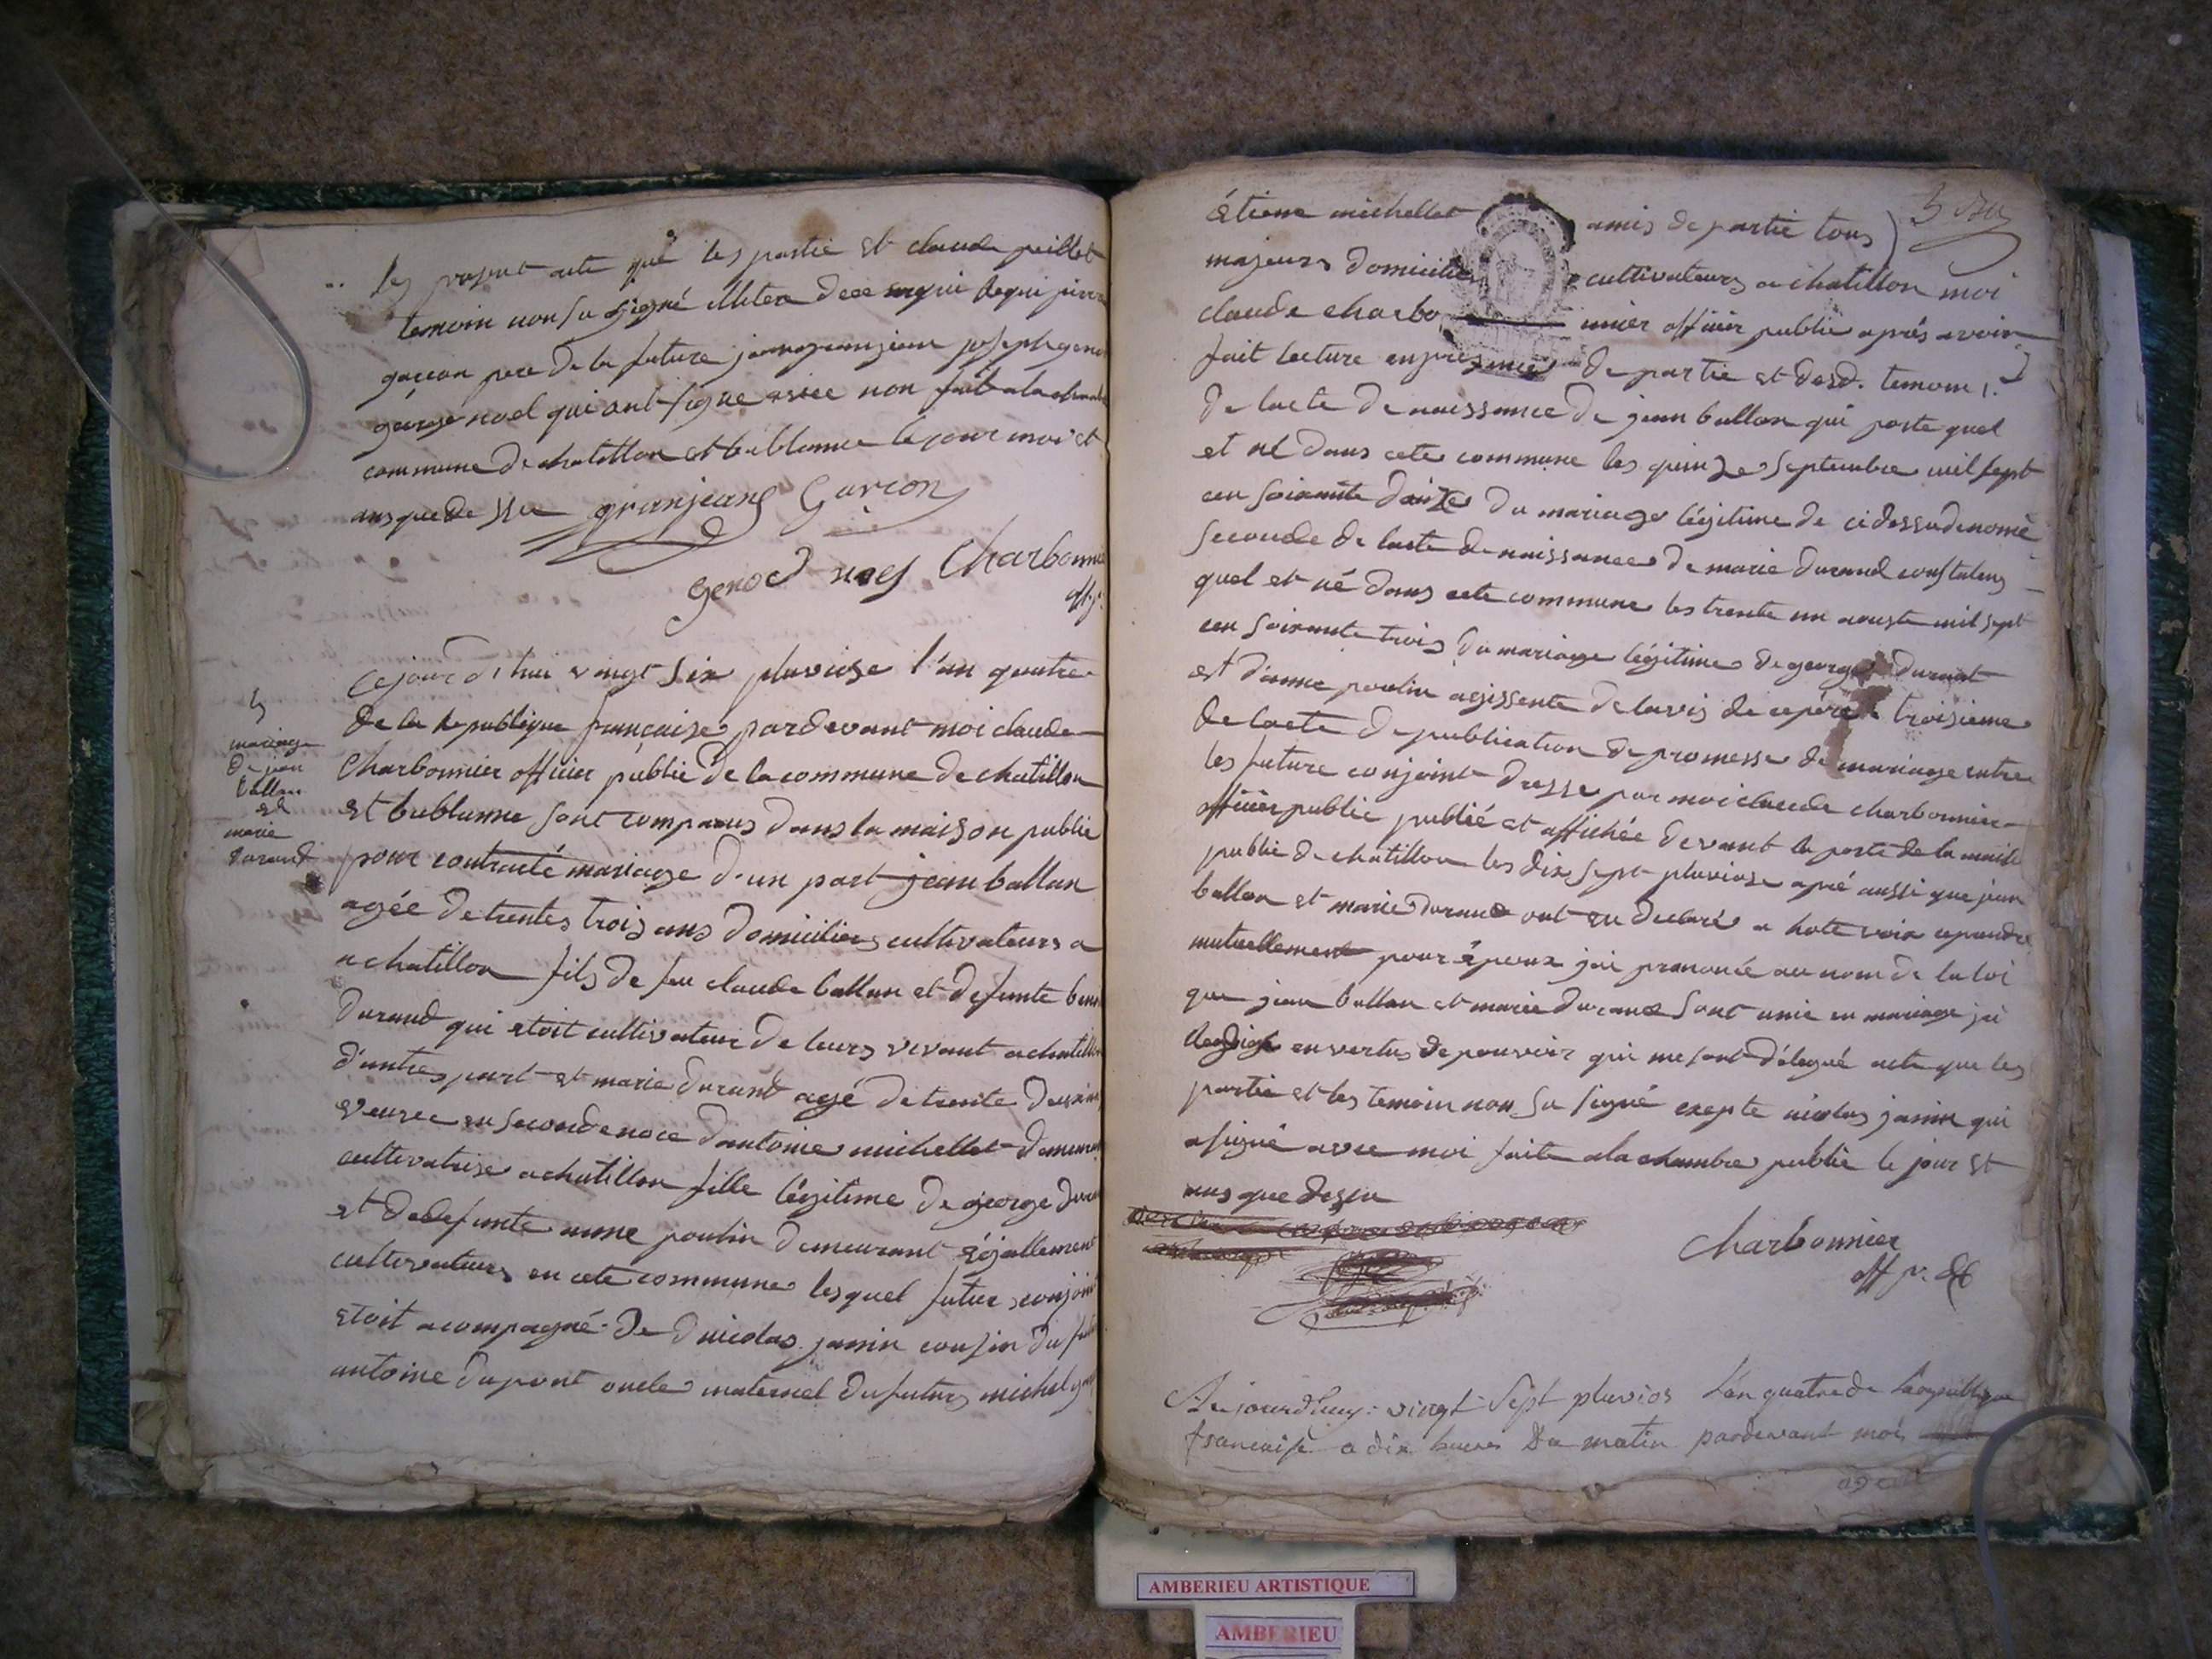 les present acte que les partie et claude peillet
temoin non su signé
garcon pere de la future joseph genod
george noel qui ont signe avec non fait a la chambre
commune de chatillon et bublanne le jour moi et
ans que dessu granjean Garcon
genod noel Charbonnie
off. p.
Ce jour d'hui vingt six pluviose l'an quatre
de la Republique française pardevant moi claude
Charbonnier officier public de la commune de chatillon
et bublanne sont comparus dans la maison public
pour contracté mariage d'un part jean ballan
agée de trentes trois ans domicilies cultivateurs a
a chatillon fils de feu claude ballan et defunte
Durand qui etoit cultivateur de leurs vivant a chatillon
d'autres part et marie Durand agé de trente deux ans
veuvee en seconde noce d'antoine michellet demeurant
cultivatrise a chatillon fille légitime de george
et de defunte anne poulin demeurant égallement
cultivateurs en cete commune lesquel futur conjoint
etoit acompagné de nicolas janin cousin du futur
antoine dupont oncle maternel du futur michel
5
mariage
de jean
ballan
et
marie
durand
étiene michellet amis de partie tous
majeurs domicilies cultivateurs a chatillon moi
claude charbo nnier officier public après avoir
fait lecture en presence de partie et desd. temoins
de lacte de naissance de jean ballan qui porte quel
et né dans cete commune les quinze septembre mil sept
cen soixante du mariage légitime de ci dessu denomé
seconde de lacte de naissance de marie durand
quel et né dans cete commune les trente un aouste mil sept
cen soixante trois du mariage légitime de george durant
et d'anne poulin agissente de lavis de ce pere troisieme
de lacte de publication de promesse de mariage entre
les future conjoint dresse par moi claude charbonnier
officier public publié et affichée devant la porte de la
public de chatillon les dix sept pluviose apré aussi que jean
ballan et marie durand ont eu declaré a hote voix
mutuellement pour époux jai prononcé au nom de la loi
que jean ballan et marie durand sont unie en mariage jai
en vertus de pouvoir qui me sont délegué acte que les
partie et les temoin non su signé exepte nicolas janin qui
a signé avec moi faite a la chambre public le jour et
ans que dessu
Charbonnier
off p.
Aujourdhuy vingt sept pluvios L'an quatre de la republique
francaise a dix heures Du matin pardevant moi
AMBERIEU ARTISTIQUE
AMBERIEU